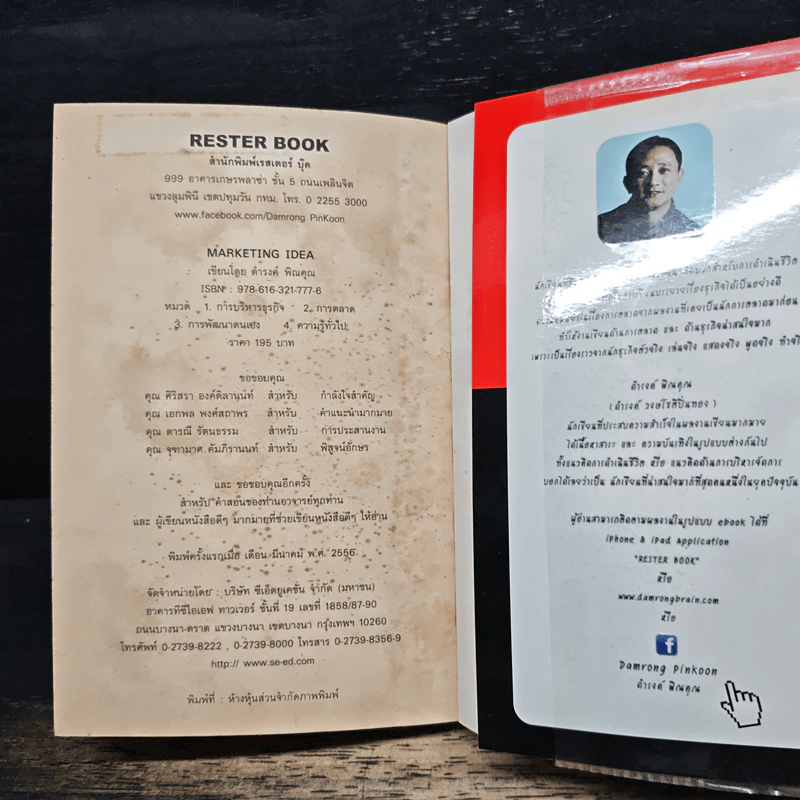 RESTER BOOK
สำนักพิมพ์เรสเตอร์ บุ๊ค
999 อาคารเกษรพลาซ่า ชั้น 5 ถนนเพลินจิต
แขวงลุมพินี เขตปทุมวัน กทม. โทร. 0 2255 3000
www.facebook.com/Damrong PinKoon
MARKETING IDEA
เขียนโดย ดำรงค์ พิณคุณ
ISBN : 978-616-321-777-6
หมวด 1. การบริหารธุรกิจ 2. การตลาด
3. การพัฒนาตนเอง 4. ความรู้ทั่วไป
ราคา 195 บาท
ขอขอบคุณ
คุณ ศิริสรา องค์ติลานุนัท์ สำหรับ กำลังใจสำคัญ
คุณ เอกพล พงศ์สถาพร สำหรับ คำแนะนำมากมาย
คุณ ดารณี รัตนธรรม สำหรับ การประสานงาน
คุณ จุฑามาศ คัมภิรานนท์ สำหรับ พิสูจน์อักษร
และ ขอขอบคุณอีกครั้ง
สำหรับ คำสอนของท่านอาจารย์ทุกท่าน
และ ผู้เขียนหนังสือดีๆ มากมายที่ช่วยเขียนหนังสือดีๆ ให้อ่าน
พิมพ์ครั้งแรกเมื่อ เดือน มีนาคม พ.ศ. 2556
จัดจำหน่ายโดย : บริษัท ซีเอ็ดยูเคชั่น จำกัด (มหาชน)
อาคารทีซีไอเอฟ ทาวเวอร์ ชั้นที่ 19 เลขที่ 1858/87-90
ถนนบางนา-ตราด แขวงบางนา เขตบางนา กรุงเทพฯ 10260
โทรศัพท์ 0-2739-8222 , 0-2739-8000 โทรสาร 0-2739-8356-9
http:// www.se-ed.com
พิมพ์ที่ : ห้างหุ้นส่วนจำกัดภาพพิมพ์
สำหรับการดำเนินชีวิต
นักเขียน
บรรยายเรื่องธุรกิจได้เป็นอย่างดี
เรื่องการตลาดจากผลงานที่เคยเป็นนักการตลาดมาก่อน
ทำให้งานเขียนด้านการตลาด และ ด้านธุรกิจน่าสนใจมาก
เพราะเป็นเรื่องราวจากนักธุรกิจตัวจริง เล่นจริง แสดงจริง พูดจริง ทำจริง
ดำรงค์ พิณคุณ
( ดำรงค์ วงษ์โชติปิ่นทอง )
นักเขียนที่ประสบความสำเร็จในผลงานเขียนมากมาย
ได้เนื้อหาสาระ และ ความบันเทิงในรูปแบบต่างกันไป
ทั้งแนวคิดการดำเนินชีวิต หรือ แนวคิดด้านการบริหารจัดการ
บอกได้เลยว่าเป็น นักเขียนที่น่าสนใจมากที่สุดคนหนึ่งในยุคปัจจุบัน
ผู้อ่านสามารถติดตามผลงานในรูปแบบ ebook ได้ที่
iPhone & iPad Application
"RESTER BOOK"
หรือ
www.damrongbrain.com
หรือ
f
Damrong Pinkoon
ดำรงค์ พิณคุณ